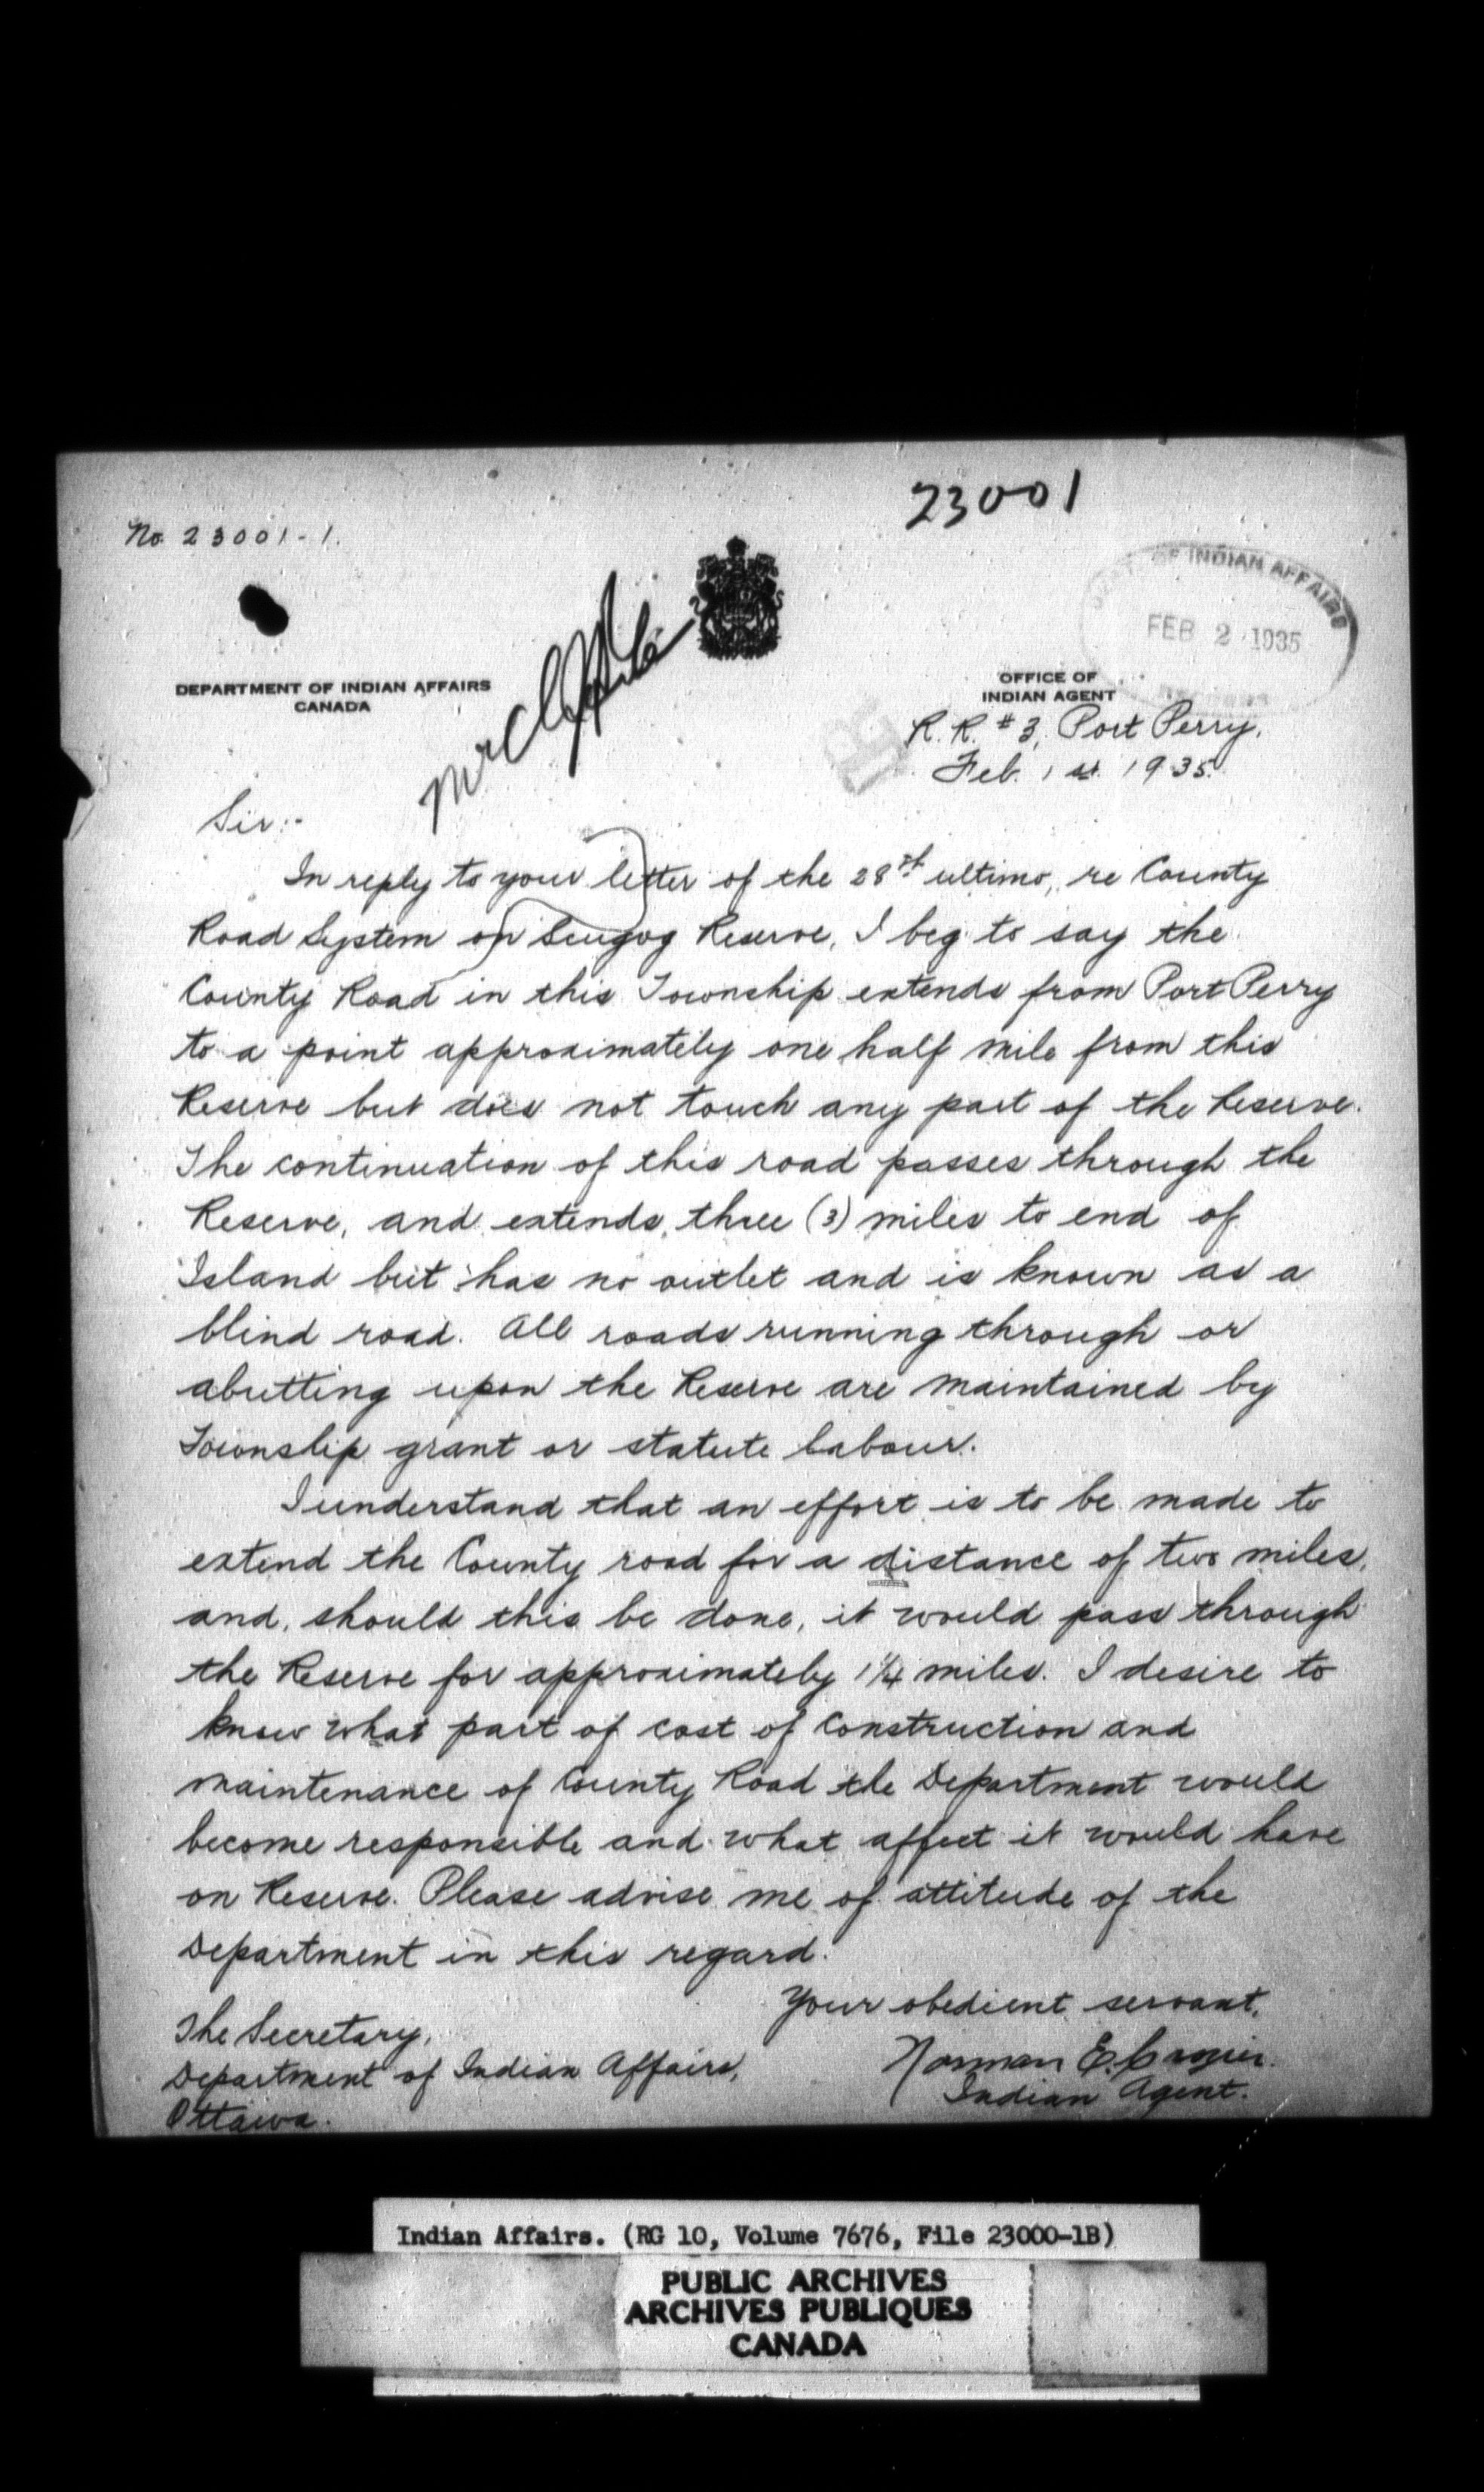 23001
No. 23001-1.
DEPT. OF INDIAN AFFAIRS
FEB 2 1935
DEPARTMENT OF INDIAN AFFAIRS
CANADA
OFFICE OF
INDIAN AGENT
R. R. # 3, Port Perry,
Feb. 1st. 1935.
Sir:-
In reply to your letter of the 28th ultimo, re County
Road System on Scugog Reserve, I beg to say the
County Road in this Township extends from Port Perry
to a point approximately one half mile from this
Reserve but does not touch any part of the Reserve.
The continuation of this road passes through the
Reserve, and extends, three (3) miles to end of
Island but has no outlet and is known as a
blind road. All roads running through or
abutting upon the Reserve are maintained by
Township grant or statute labour.
I understand that an effort is to be made to
extend the County road for a distance of two miles,
and, should this be done, it would pass through
the Reserve for approximately 1 1/4 miles. I desire to
know what part of cost of construction and
maintenance of County Road the Department would
become responsible and what affect it would have
on Reserve. Please advise me of attitude of the
Department in this regard.
Your obedient servant,
Norman E. Crozier.
Indian Agent.
The Secretary,
Department of Indian Affairs,
Ottawa.
Indian Affairs. (RG 10, Volume 7676, File 23000-1B)
PUBLIC ARCHIVES
ARCHIVES PUBLIQUES
CANADA